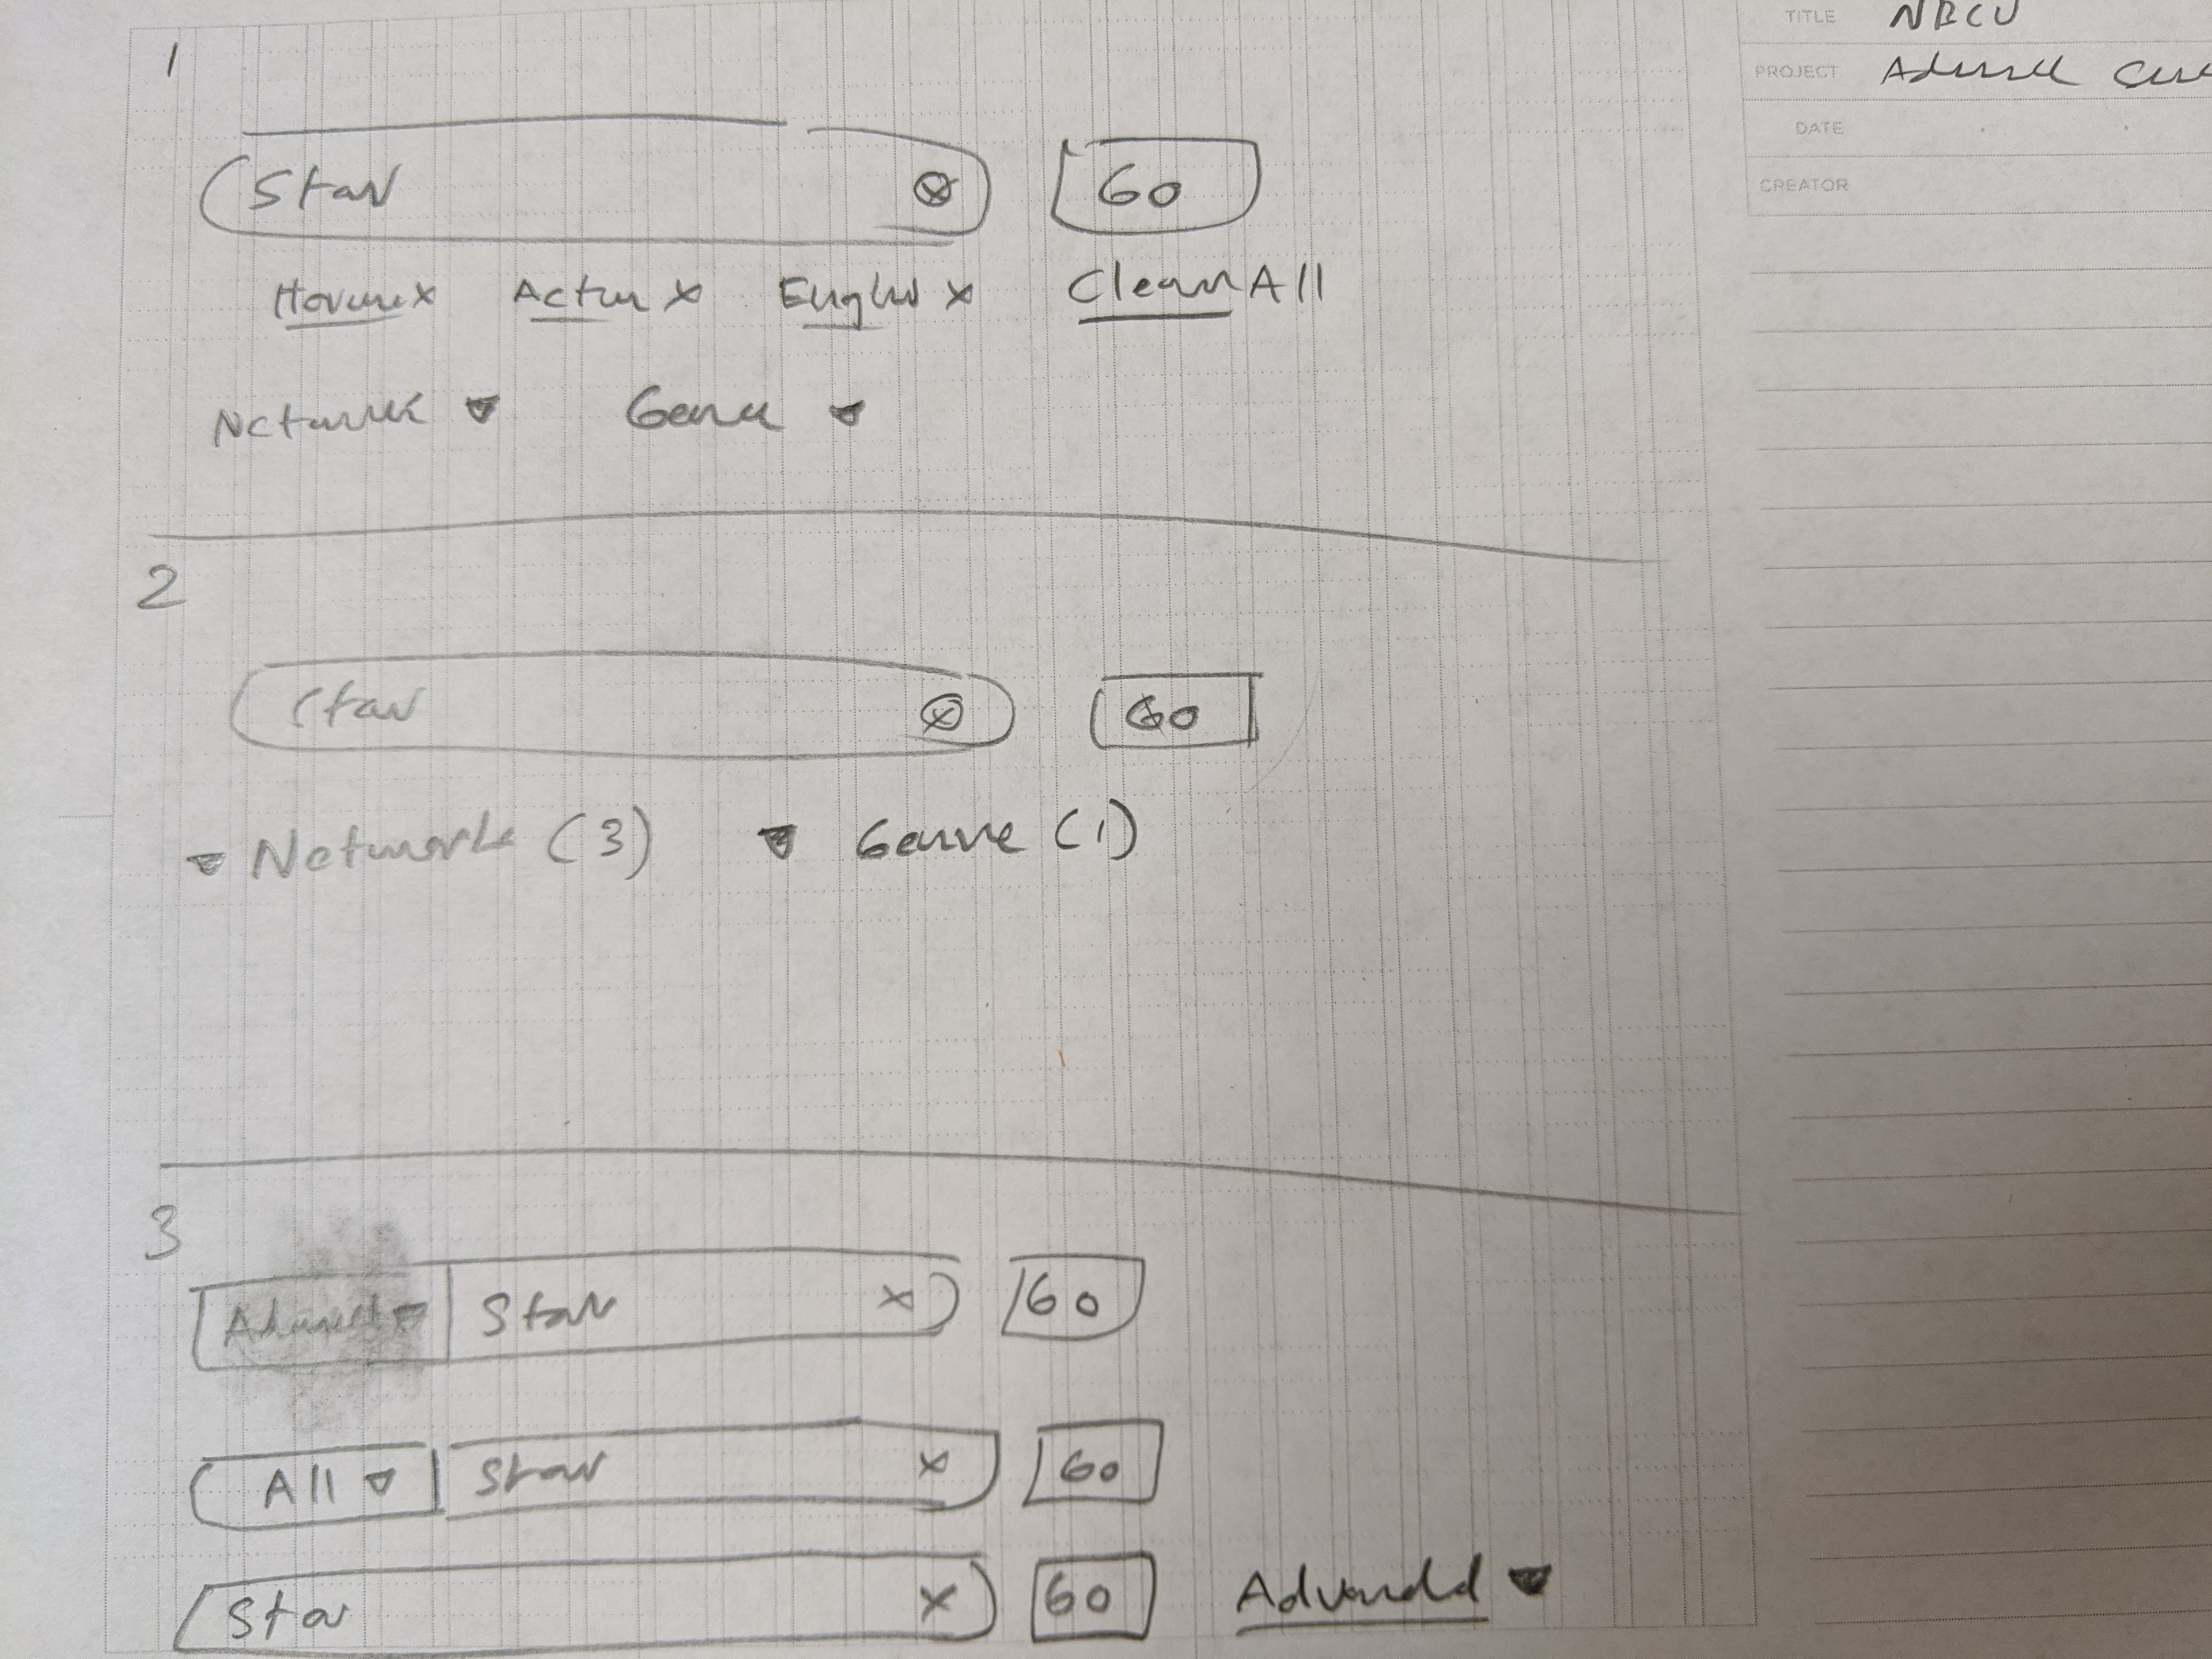 TITLE NBCU
PROJECT
DATE
CREATOR
1
Star Go
x Action x English x Clear All
Network Genre
2
Star Go
Network (3) Genre (1)
3
Star x Go
All Star x Go
Star x Go Advanced